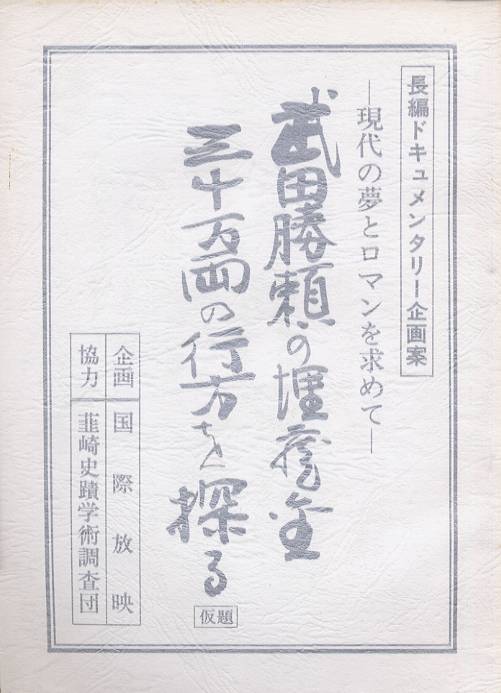 長編ドキュメンタリー企画案
―現代の夢とロマンを求めて―
武田勝頼の埋蔵金
三十万両の行方を探る
仮題
企画 国際放映
協力 韮崎史蹟学術調査団